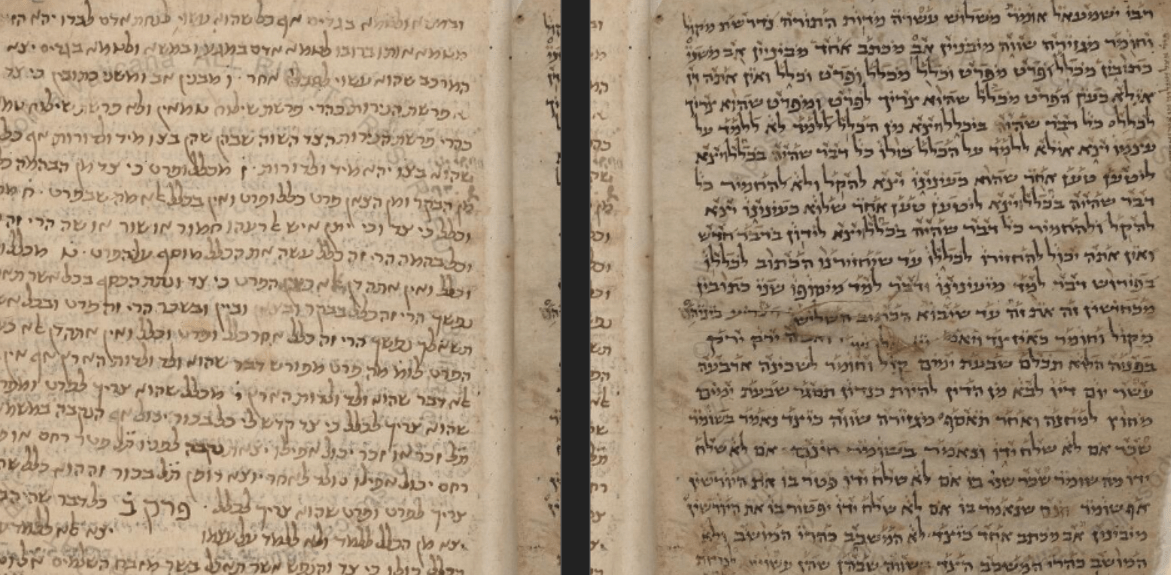 רבי ישמעאל אומר משלוש עשרה מידות התורה נדרשת מקל
וחומר מגזירה שווה מיבניין אב מכתב אחד מבינין אב משני
כתובין מכלל ופרט מפרט וכלל מכלל ופרט וכלל ואין אתה דן
אילא כעין הפרט מכלל שהוא צריך לפרט ומפרט שהוא צריך
לכלל כל דבר שהיה בכלל ויצא מן הכלל ללמד לא ללמד על
עצמו יצא אילא ללמד על הכלל כולו כל דבר שהיה בכלל ויצא
ליטעון טען אחר שהוא כעיניינו יצא להקל ולא להחמיר כל
דבר שהיה בכלל ויצא ליטעון טען אחר שלוא כעיניינו יצא
להקל ולהחמיר כל דבר שהיה בכלל ויצא לידון בדבר חדש
ואין אתה יכול להחזירו לכללו עד שיחזירנו הכתוב לכללו
בפירוש דבר למד מיעינינו ודבר למד מיסופו שני כתובין
מכחישין זה את זה עד שיבוא הכתוב השלישי
מקול וחומר כאיזצד ירק ירק
בפניה הלוא תכלם שבעת ימים קול וחומר לשכינה ארבעה
עשר יום דיו לבא מן הדין להיות כנדון תסגר שבעת ימים
מחוץ למחנה ואחר תאסף מגזירה שווה כיצד נאמר בשומר
שכר אם לא שלח ידו ונאמר בשומר חינם אם לא שלח
ידו מה שומר שכר שנ' בו אם לא שלח ידו פטר בו את היורשין
אף שומר חנם שנאמר בו אם לא שלח ידו יפטור בו את היורשין
מיבינון אב מכתב אחד כיצד לא המשכב כהרי המושב ולא
המושב כהרי המשכב הצד השווה שבהן שהן עשויין
ובמשא ולטמא בגדים אף כל שהוא עשוי לנחת אדם לבדו יהא
מטמא אותו ברובו לטמא אדם במגע ובמשא ולטמא בגדים יצא
המורכב שהוא עשוי לסבל אחר ו מבנין אב ומשני כתובין כי צד
פרשת הנירות כהרי פרשת שילוח טמאין ולא פרשת שילוח
כהרי פרשת הנירות הצד השוה שבהן שהן בצו מיד ולדורות אף כל
שהוא בצו יהא מיד ולדורות ז מכלל ופרט כי צד מן הבהמה
מן הבקר ומן הצאן פרט כלל ופרט ואין בכלל אלא מה שבפרט ח
וכלל כי צד וכי יתן איש אל רעהו חמור או שור או שה הרי זה
וכל בהמה הרי זה כלל עשה את הכלל מוסף על הפרט ט מכלל
וכלל ואין אתה דן אלא כעין הפרט כי צד ונתת הכסף בכל אשר
נפשך הרי זה כלל בבקר ובצאן וביין ובשכר הרי זה פרט ובכל
תשאלך נפשך הרי זה כלל אחר כלל ופרט וכלל ואין אתה דן אלא
הפרט לומר מה פרט מפורש דבר שהוא ולד ולדות הארץ אף אין
אלא דבר שהוא ולד ולדות הארץ י מכלל שהוא צריך לפרט ומפרט
שהוא צריך לכלל כי צד קדש לי כל בכור יכול אף הנקבה במשמע
תל זכר או זכר יכול אפילו יצאת נקבה לפניו תל פטר רחם או
רחם יכול אפילו נולד לאחר יוצא דופן תל בכור זהו הוא כלל
צריך לפרט ופרט שהוא צריך לכלל · פרק ב כל דבר שהיה
יצא מן הכלל ללמד ולא ללמד על עצמו יצא אלא ללמד
בכלל כולו כי צד והנפש אשר תאכל בשר מזבח השלמים